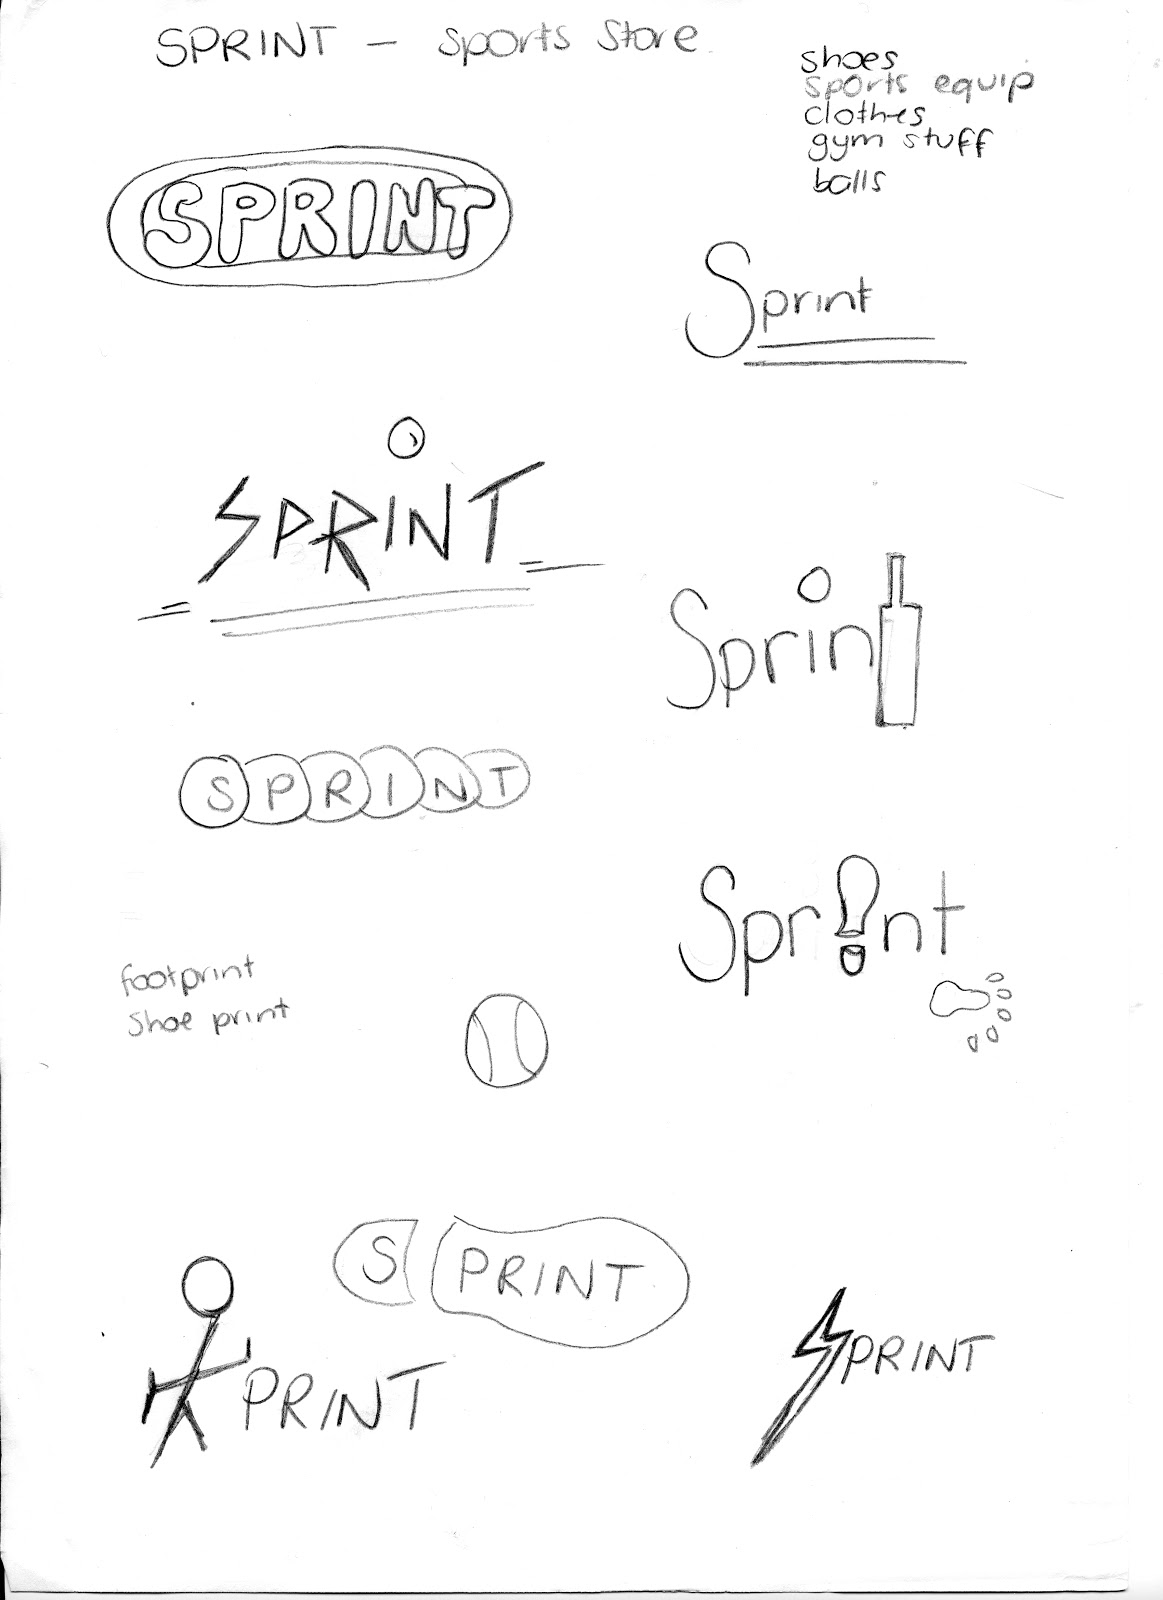 SPRINT — Sports Store
shoes
sports equip
clothes
gym stuff
balls
SPRINT
Sprint
SPRINT
Sprint
SPRINT
Sprint
footprint
Shoe print
S PRINT
PRINT
SPRINT